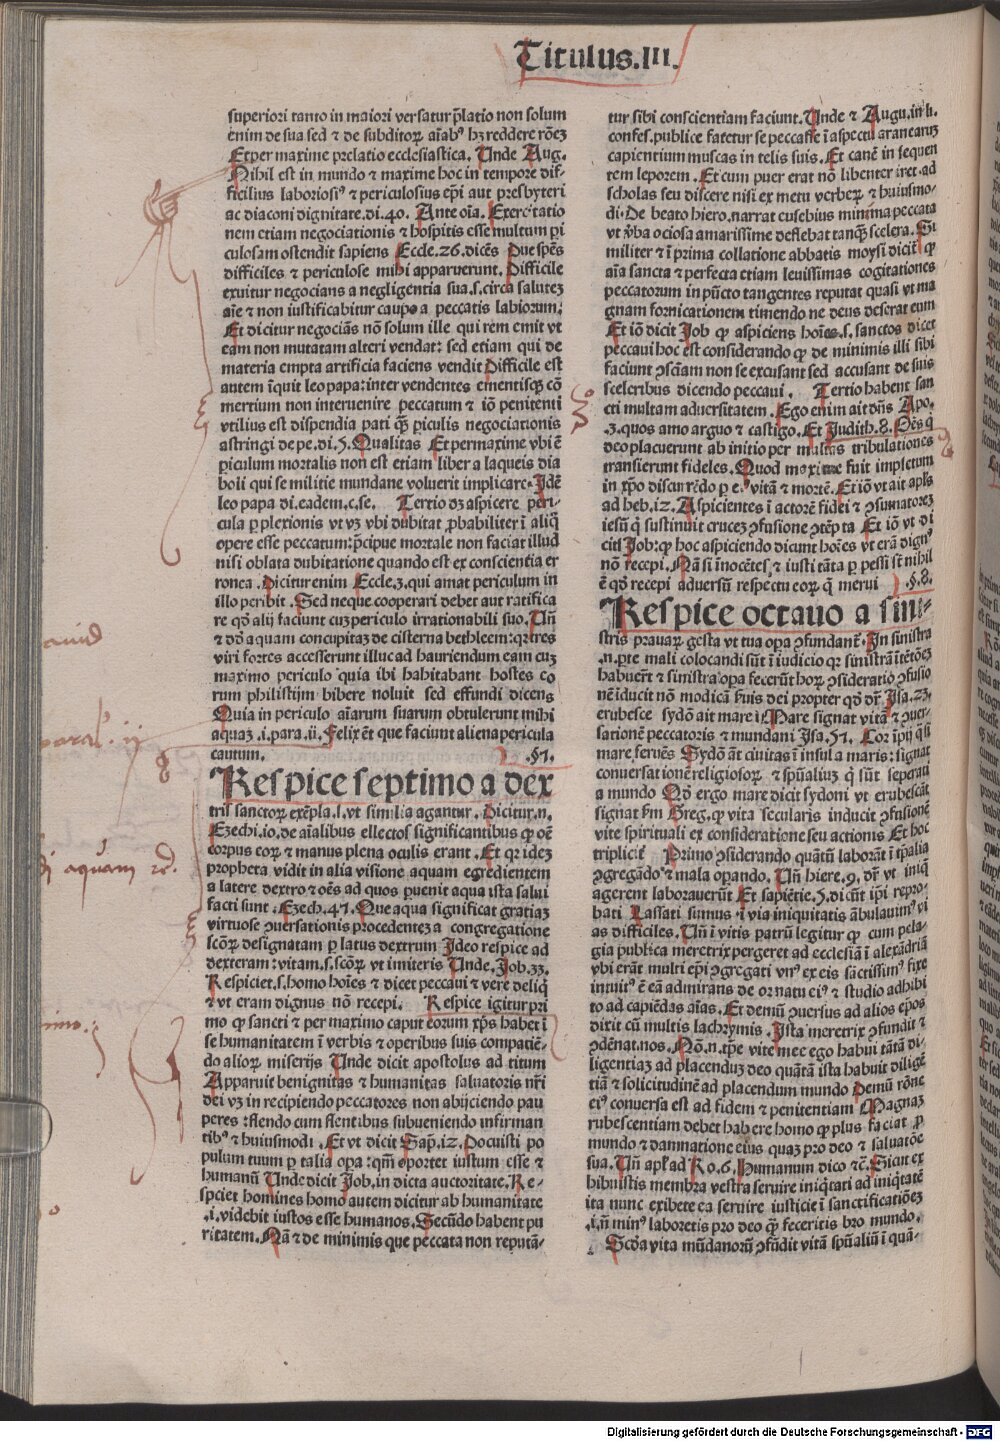 Titulus.III.
superiori tanto in maiori versatur p̄latio non solum
enim de sua sed ⁊ de subditoꝝ aīabꝰ hꝫ reddere rōeꝫ
Et per maxime prelatio ecclesiastica. Unde Aug.
Nihil est in mundo ⁊ maxime hoc in tempore dif-
ficilius laboriosiꝰ ⁊ periculosius ep̄i aut presbyteri
ac diaconi dignitate.di.40. Ante oīa. Exercitatio
nem etiam negociationis ⁊ hospitis esse multum ꝑi
culosam ostendit sapiens Eccle.26.dicēs Due spēs
difficiles ⁊ periculose mihi apparuerunt. Difficile
exuitur negocians a negligentia sua.s.circa saluteꝫ
aīe ⁊ non iustificabitur caupo a peccatis labiorum:
Et dicitur negociās nō solum ille qui rem emit vt
eam non mutatam alteri vendat: sed etiam qui de
materia empta artificia faciens vendit Difficile est
autem īquit leo papa:inter vendentes ementisqꝫ cō
mertium non interuenire peccatum ⁊ iō penitenti
vtilius est dispendia pati qꝫ̄ ꝑiculis negociationis
astringi de pe.di.5.Qualitas Et permaxime vbi ē
ꝑiculum mortalis non est etiam liber a laqueis dia
boli qui se militie mundane voluerit implicare.Idē
leo papa di.eadem.c.se. Tertio dꝫ aspicere peri-
cula ꝑplexionis vt vꝫ vbi dubitat ꝓbabiliter ī aliq̄
opere esse peccatum:p̄cipue mortale non faciat illud
nisi oblata dubitatione quando est ex conscientia er
ronea. Dicitur enim Eccle.3.qui amat periculum in
illo peribit .Sed neque cooperari debet aut ratifica
re qd̄ alij faciunt cuꝫ periculo irrationabili suo.Un̄
⁊ dō aquam concupitaꝫ de cisterna bethleem:qꝛ tres
viri fortes accesserunt illuc ad hauriendum eam cuꝫ
maximo periculo quia ibi habitabant hostes eo
rum philistijm bibere noluit sed effundi dicens
Quia in periculo aīarum suarum obtulerunt mihi
aquaꝫ.i.para.ii. Felix ēt que faciunt aliena pericula
cautum. .§7.
Respice septimo a dex
tris sanctoꝝ exēpla.s.vt similia agantur. Dicitur.n.
Ezechi.10.de aīalibus ellectos significantibus ꝙ oē
corpus eoꝝ ⁊ manus plena oculis erant. Et qꝛ ideꝫ
propheta vidit in alia visione aquam egredientem
a latere dextro ⁊ oēs ad quos ꝑuenit aqua ista salui
facti sunt. Ezech.47. Que aqua significat gratiaꝫ
virtuose ꝯuersationis procedenteꝫ a congregatione
scōꝝ designatam ꝑ latus dextrum Ideo respice ad
dexteram: vitam.s.scōꝝ vt imiteris Unde.Job.33.
Respiciet.s.homo hoīes ⁊ dicet peccaui ⁊ vere deliq̄
⁊ vt eram dignus nō recepi. Respice igitur pri
mo ꝙ sancti ⁊ per maximo caput eorum xp̄s habet ī
se humanitatem ī verbis ⁊ operibus suis compatiē-
do alioꝝ miserijs Unde dicit apostolus ad titum
Apparuit benignitas ⁊ humanitas saluatoris nr̄i
dei vꝫ in recipiendo peccatores non abijciendo pau
peres:flendo cum flentibus subueniendo infirman
tibꝰ ⁊ huiusmodi. Et vt dicit Sap̄.12. Docuisti po
pulum tuum ꝑ talia opa:qm̄ oportet iustum esse ⁊
humanū Unde dicit Job.in dicta auctoritate.Re-
spciet homines homo autem dicitur ab humanitate
.i.videbit iustos esse humanos. Secūdo habent pu
ritatem. Nā ⁊ de minimis que peccata non reputā-
tur sibi conscientiam faciunt. Unde ⁊ Augu.in li.
confes.publice fatetur se peccasse ī aspectu aranearuꝫ
capientium muscas in telis suis. Et canē in sequen
tem leporem. Et cum puer erat nō libenter iret ad
scholas seu discere nisi ex metu verbeꝝ ⁊ huiusmo-
di. De beato hiero.narrat eusebius minima peccata
vt v̄ba ociosa amarissime deflebat tanqꝫ̄ scelera. Si
militer ⁊ ī prima collatione abbatis moysi dicit̄ ꝙ
aīa sancta ⁊ perfecta etiam leuissimas cogitationes
peccatorum in pūcto tangentes reputat quasi vt ma
gnam fornicationem timendo ne deus deserat eum
Et iō dicit Job ꝙ aspiciens hoīes.s.sanctos dicet
peccaui hoc est considerando ꝙ de minimis illi sibi
faciunt ꝯsciam non se excusant sed accusant de suis
sceleribus dicendo peccaui. Tertio habent san
cti multam aduersitatem. Ego enim ait dn̄s Apo.
.3.quos amo arguo ⁊ castigo. Et Judith.8. Oēs q̄
deo placuerunt ab initio per multas tribulationes
transierunt fideles. Quod maxime fuit impletum
in xp̄o discurrēdo ꝑ eꝰ vitā ⁊ mortē. Et iō vt ait apl̄s
ad heb.12. Aspicientes ī actorē fidei ⁊ ꝯsumatoreꝫ
iesū q̄ sustinuit cruceꝫ ꝯfusione ꝯtēpta Et iō vt di
citl Job:ꝙ hoc aspiciendo dicunt hoīes vt erā dignꝰ
nō recepi. Nā si īnocētes ⁊ iusti tāta ꝑ pessi st̄ nihil
ē qd̄ recepi aduersū respectu eoꝝ q̄ merui .§.8.
Respice octauo a sini-
stris prauaꝝ gesta vt tua opa ꝯfundant̄. In sinistra
.n.ꝑte mali colocandi sūt ī iudicio qꝛ sinistrā ītētōeꝫ
habuerūt ⁊ sinistra opa fecerūt hoꝝ ꝯsideratio ꝯfusio
nē īducit nō modicā fuis dei propter qd̄ dr̄ Isa.23.
erubesce sydō ait mare ī Mare signat vitā ⁊ ꝯuer-
sationē peccatoris ⁊ mundani Isa.57. Cor īpij q̄si
mare feruēs Sydō āt ciuitas ī insula maris: signat
conuersationē religiosoꝝ ⁊ spūaliuꝫ q̄ sūt seperati
a mundo Qd̄ ergo mare dicit sydoni vt erubescāt
signat fm̄ Greg.ꝙ vita secularis inducit ꝯfusionē
vite spirituali ex consideratione seu actionis Et hoc
triplicit̄ Primo ꝯsiderando quātū laborāt ī tp̄alia
ꝯgregādo ⁊ mala opando. Un̄ hiere.9. dr̄ vt iniq̄
agerent laborauerūt Et sapiētie.5.dicūt ip̄i repro-
bati Lassati sumus ī via iniquitatis ābulauimꝰ vi
as difficiles. Un̄ ī vitis patrū legitur ꝙ cum pela-
gia publica meretrix pergeret ad ecclesiā ī alexādriā
vbi erāt multi ep̄i ꝯgregati vnꝰ ex eis sāctissimꝰ fixe
intuitꝰ ē eā admirans de ornatu eiꝰ ⁊ studio adhibi
to ad capiēdas aīas. Et demū ꝯuersus ad alios ep̄os
dixit cū multis lachrymis. Ista meretrix ꝯfundit ⁊
ꝯdēnat.nos. Nō.n.tp̄e vite mee ego habui tātā di-
ligentiaꝫ ad placenduꝫ deo quātā ista habuit diligē
tiā ⁊ solicitudinē ad placendum mundo Demū rōne
eiꝰ conuersa est ad fidem ⁊ penitentiam Magnaꝫ
rubescentiam debet habere homo ꝙ plus faciat ꝑ
mundo ⁊ damnatione eius quaꝫ pro deo ⁊ saluatōe
sua. Un̄ apl̄ ad Ro.6. Humanum dico ⁊c̄. Sicut ex
hibuistis membra vestra seruire iniq̄tati ad iniq̄tatē
ita nunc exibete ea seruire iusticie ī sanctificatiōeꝫ
.i.n̄ minꝰ laboretis pro deo qꝫ̄ feceritis pro mundo.
Scd̄a vita mūdanoꝝ ꝯfūdit vitā spūaliū ī quā-
Digitalisierung gefördert durch die Deutsche Forschungsgemeinschaft - DFG